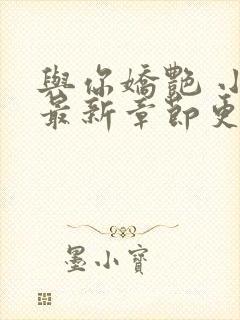 與你嬌艷 小
最新章節更
墨小寶